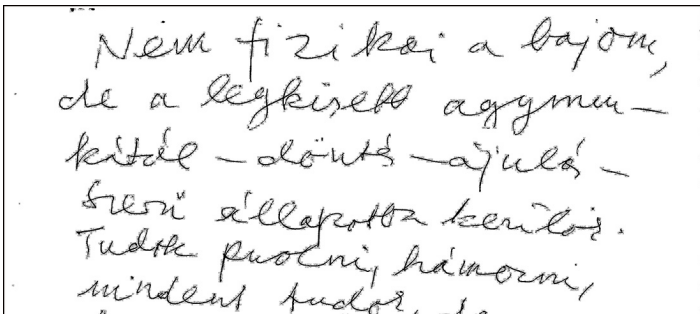 Nem fizikai a bajom,
de a legkisebb agymun-
kától - döntés - ájulás-
szerű állapotba kerülök.
Tudok pucolni, hámozni,
mindent tudok, de